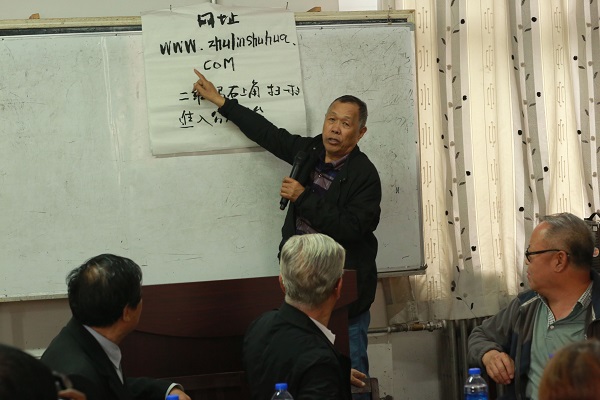 网址
WWW.zhulinshuhua.
COM
二维码右上角 扫一扫
进入 台